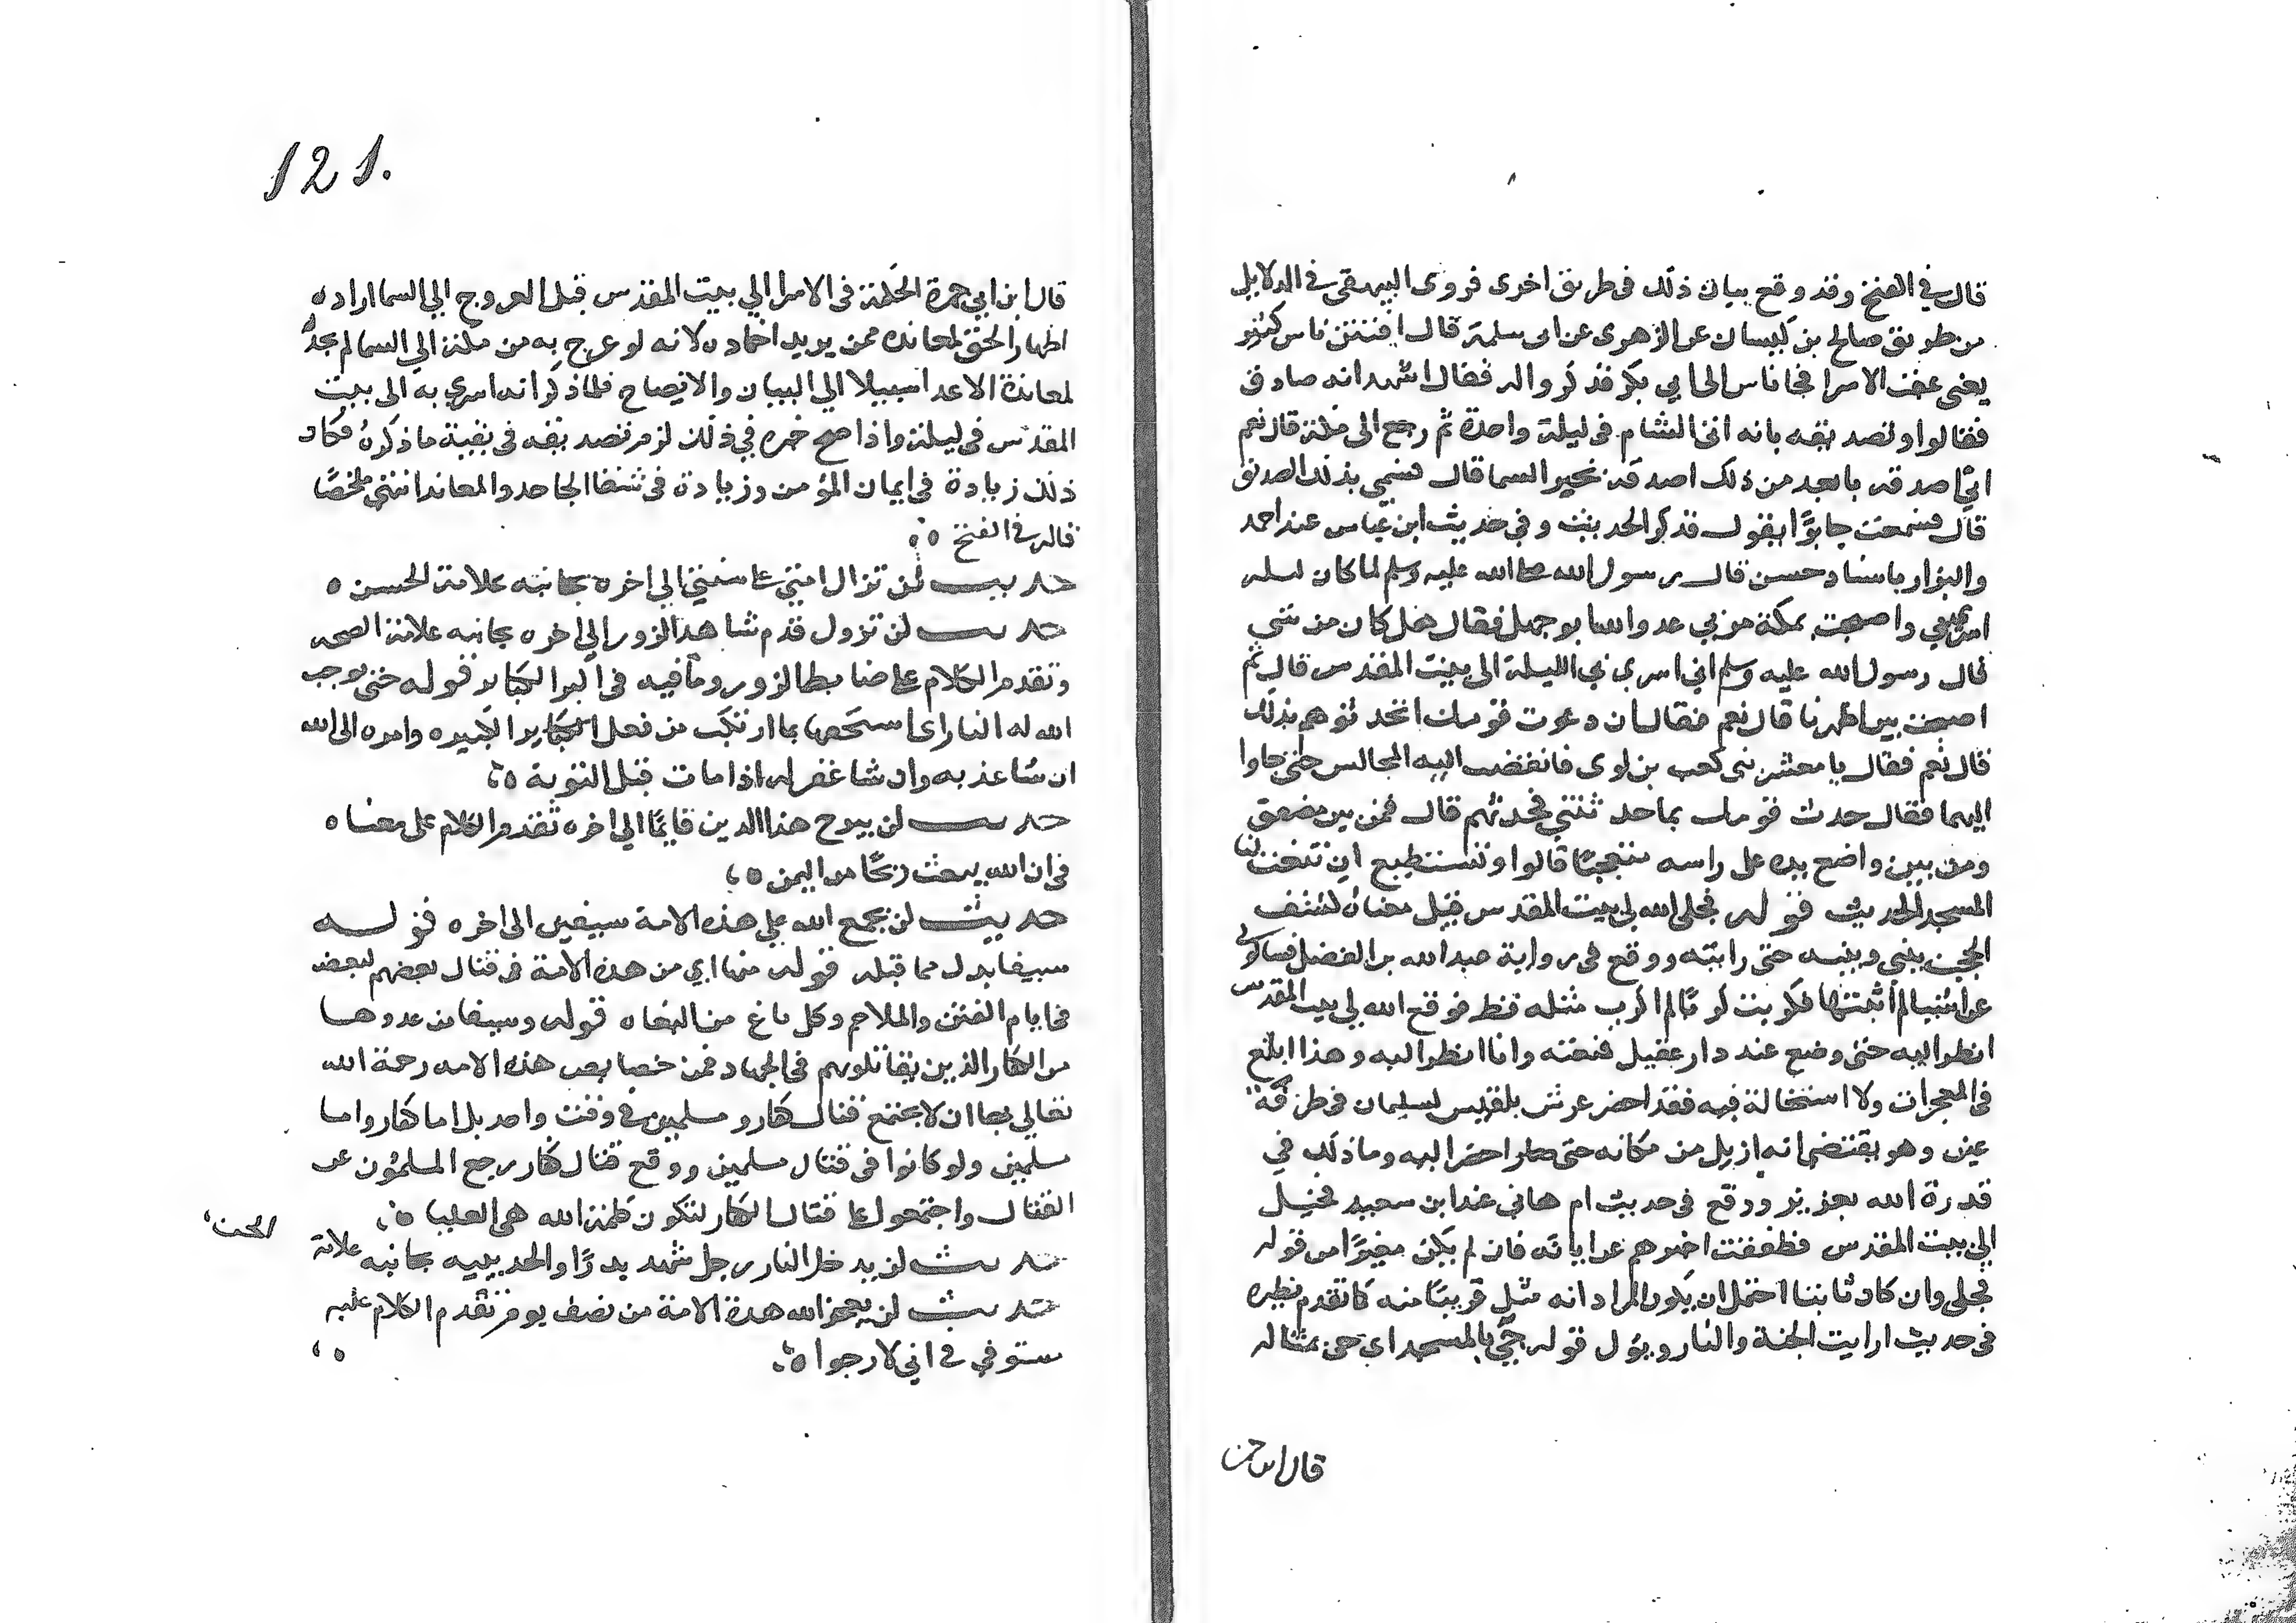 قال في الفتح وقد وقع بيان ذلك في طريق اخرى فروى البيهقي في الدلايل
من طريق صالح بن كيسان عن الزهرى عن ابى سلمة قال افتتن ناس كثير
يعنى عقب الاسرا فجا ناس الى ابي بكر فذكروا له فقال اشهد انه صادق
فقالوا وتصدقه بانه اتى الشام في ليلة واحدة ثم رجع الى مكة قال نعم
انى اصدقه بابعد من ذلك اصدقه بخبر السما قال فسمي بذلك الصديق
قال فسمعت جابرًا يقول فذكر الحديث وفي حديث ابن عباس عند احمد
والبزار باسناد حسن قال رسول الله صلى الله عليه وسلم لما كان ليلة
اسري بي واصبحت بمكة مر بي عدو الله ابو جهل فقال هل كان من شي
قال رسول الله عليه وسلم اني اسري بي الليلة الى بيت المقدس قال ثم
اصبحت بين اظهرنا قال نعم فقال ان دعوت قومك اتحدثهم بذلك
قال نعم فقال يا معشر بنى كعب بن لوى فانفضت اليه المجالس حتى جاوا
اليهما فقال حدث قومك بما حدثتني فحدثهم قال فمن بين مصفق
ومن بين واضع يده على راسه متعجبًا قالوا وتستطيع ان تنعت لنا
المسجد الحديث قوله فجلى الله لي بيت المقدس قيل معناه كشف
الحجب بيني وبينه حتى رايته ووقع في رواية عبد الله بن الفضل فسالونى
عن اشيا لم اثبتها فكربت كربًا لم اكرب مثله قط فرفع الله لي بيت المقدس
انظر اليه حتى وضع عند دار عقيل فنعته وانا انظر اليه وهذا ابلغ
في المعجزات ولا استحالة فيه فقد احضر عرش بلقيس لسليمان في طرفة
عين وهو يقتضى انه ازيل من مكانه حتى صار احضر اليه وما ذلك في
قدرة الله بعزيز ووقع في حديث ام هاني عند ابن سعيد فخيل
الى بيت المقدس فطفقت اخبرهم عن اياته فان لم يكن مغيرًا من قوله
فجلى وان كان ثابتا احتمل ان يكون المراد انه مثل قريبًا منه كما تقدم نظيره
في حديث ارايت الجنة والنار ويؤل قوله جئ بالمسجد اي جئ بمثاله
قال ابن
121.
قال ابن ابي جمرة الحكمة في الاسرا الي بيت المقدس قبل العروج الي السما اراده
اظهار الحق لمعانده ممن يريد اخماده لانه لو عرج به من مكة الي السما لم يجد
لمعاندة الاعدا سبيلا الي البيان والايضاح فلما ذكر انه اسري به الى بيت
المقدس في ليلة واذا صح خبره في ذلك لزم تصديقه في بقية ما ذكره فكان
ذلك زيادة في ايمان المؤمن وزيادة في شقا الجاحد والمعاند انتهى ملخصًا
قاله في الفتح ه
حديث لن تزال امتي على سنتي الي اخره بجانبه علامة الحسن ه
حديث لن تزول قدم شاهد الزور الي اخره بجانبه علامة الصحه
وتقدم الكلام على ضابط الزور وما فيه في اكبر الكباير قوله حتى يوجب
الله له النار اى استحقها بما ارتكب من فعل الكباير الكبيره وامره الى الله
ان شا عذبه وان شا غفر له اذا مات قبل التوبة ه
حديث لن يبرح هذا الدين قايمًا الي اخره تقدم الكلام على معناه
في ان الله يبعث ريحًا من اليمن ه
حديث لن يجمع الله على هذه الامة سيفين الى اخره قوله
سيفا بدل مما قبله قوله منها اي من هذه الامة في قتال بعضهم لبعض
في ايام الفتن والملاحم وكل باغ من البغاه قوله وسيفا من عدوها
من الكفار الذين يقاتلونهم في الجهاد فمن خصايص هذه الامه رحمة الله
تعالي بها ان لا يجتمع قتال كفار ومسلمين في وقت واحد بل اما كفار واما
مسلمين ولو كانوا في قتال مسلمين ووقع قتال كفار رجع المسلمون عن
القتال واجتمعوا على قتال الكفار لتكون كلمة الله هي العليا ه
حديث لن يدخل النار رجل شهد بدرًا والحديبيه بجانبه علامة
حديث لن يعجز الله هذه الامة من نصف يوم تقدم الكلام عليه
مستوفي في اني لارجوا ه